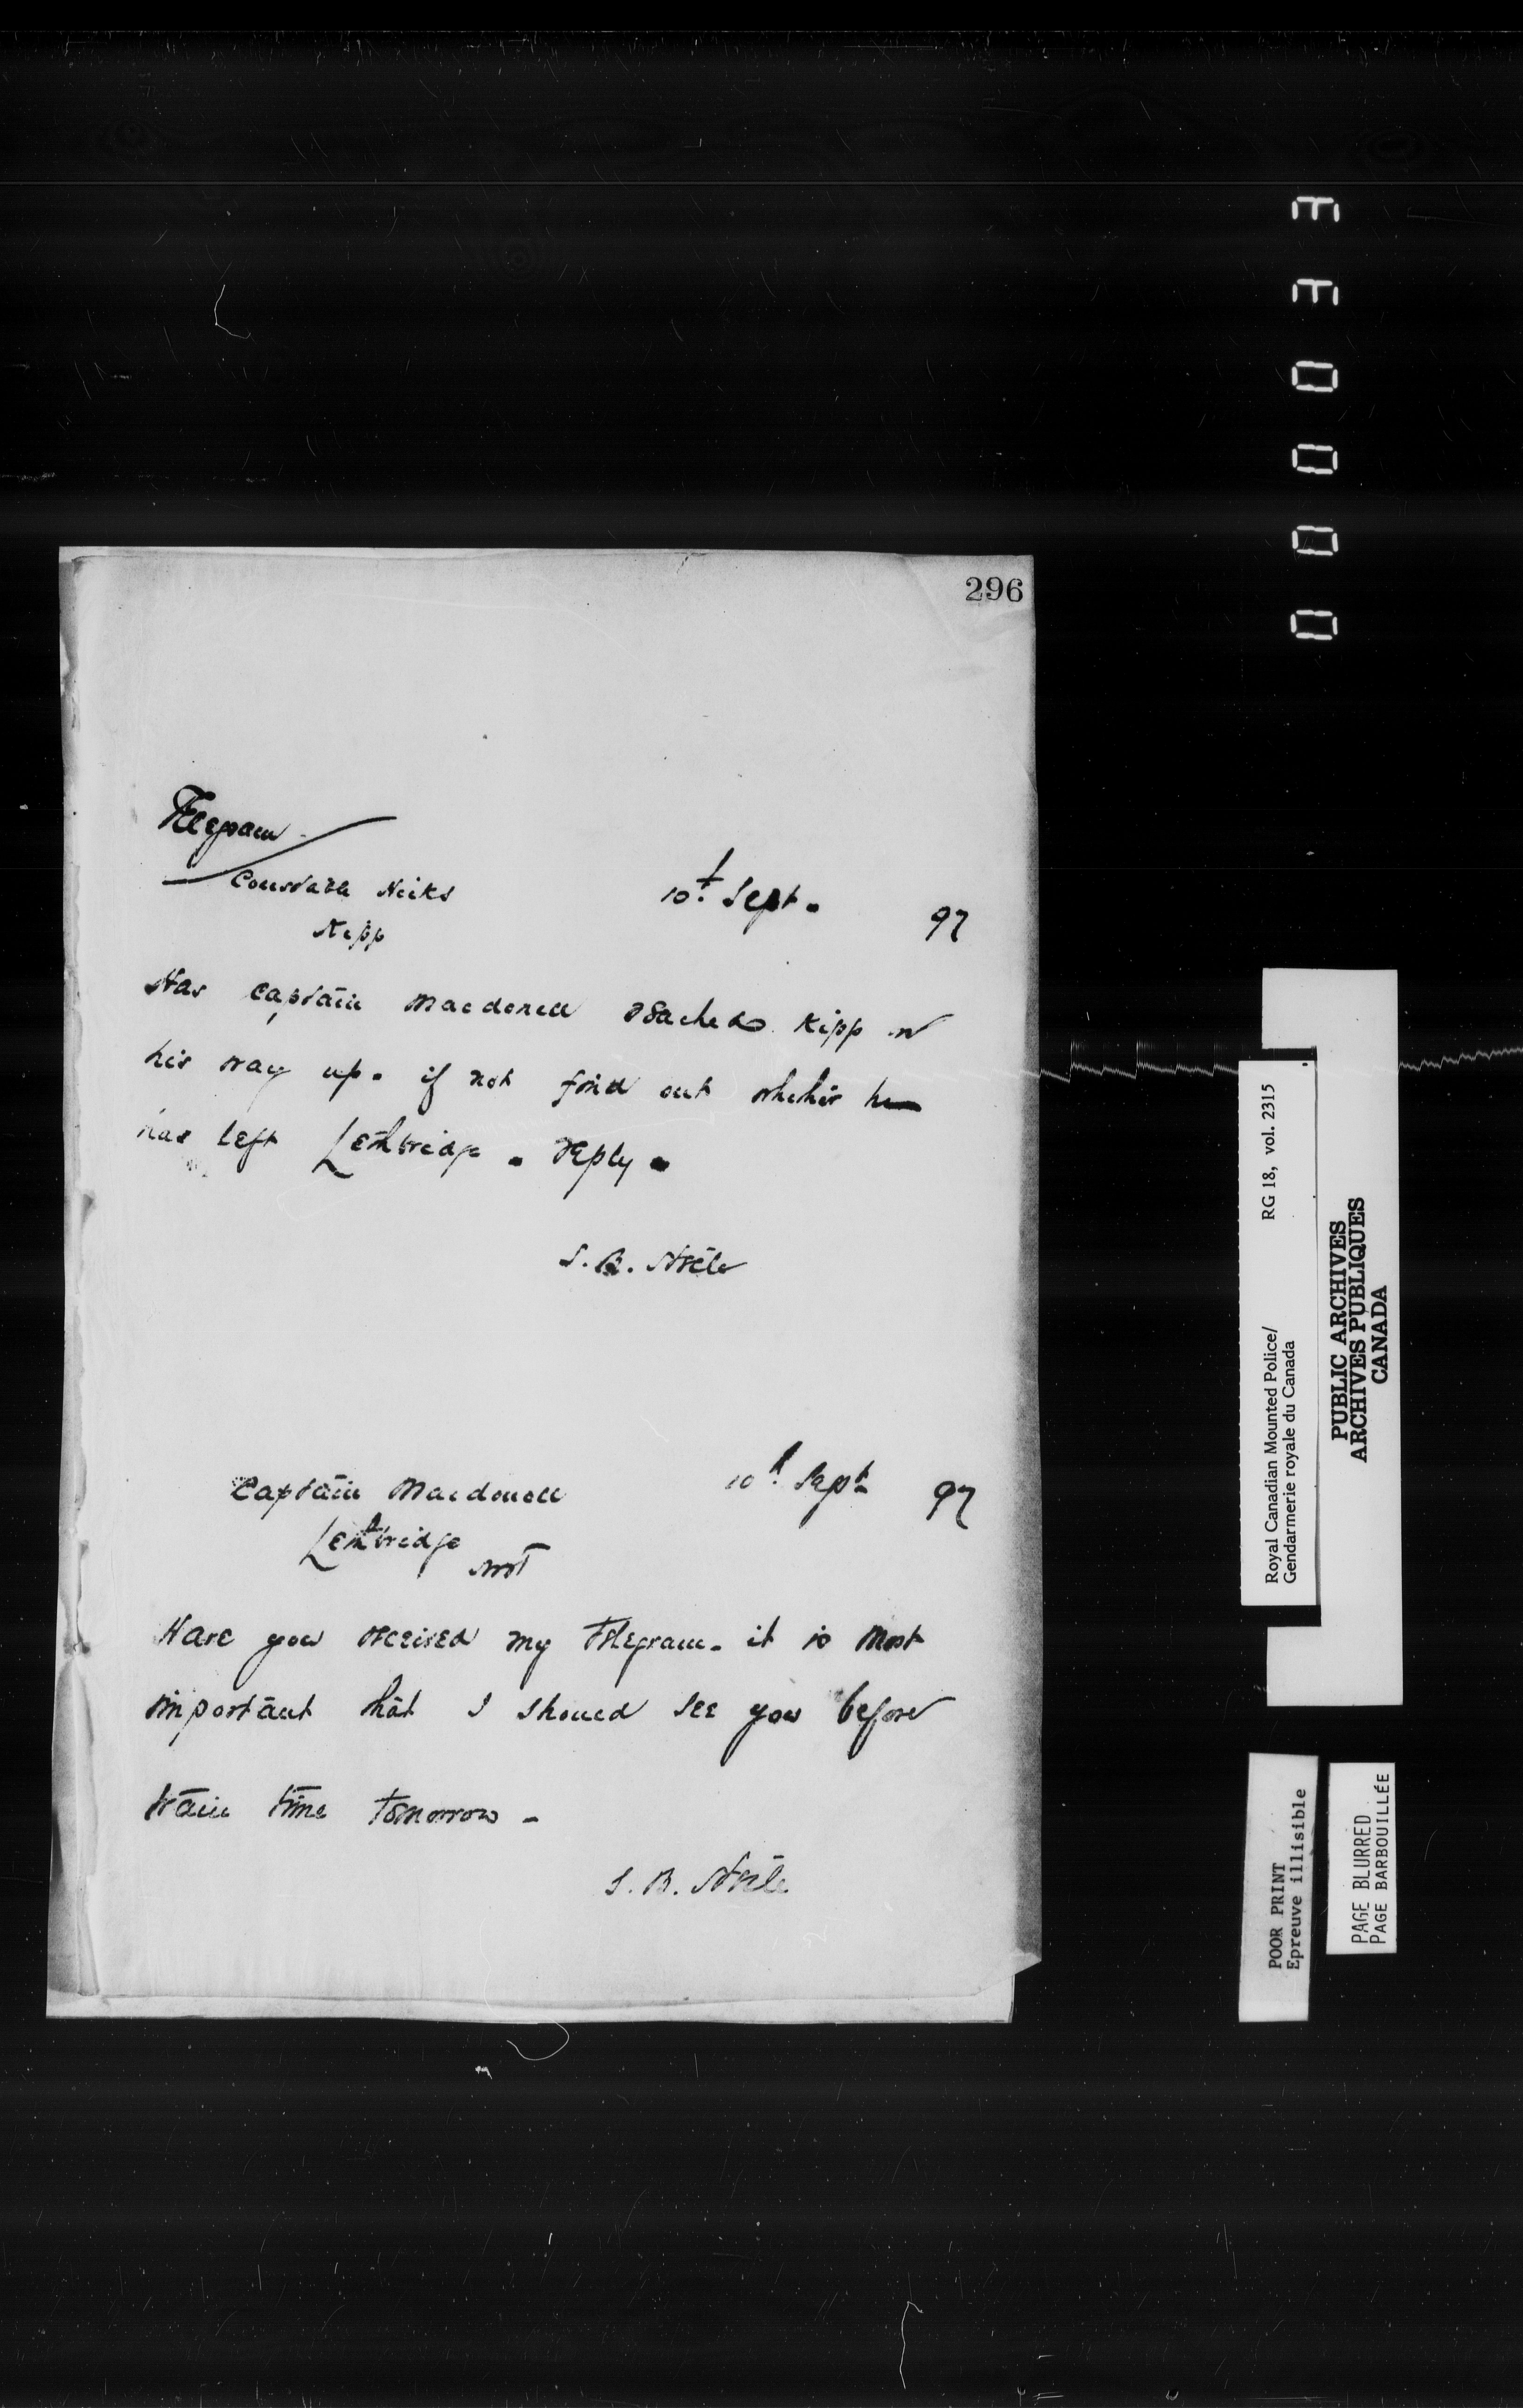 296
Telegram
Constable Hicks
Kipp
10th Sept. 97
Has Captain Macdonell reached Kipp on
his way up. if not find out whether he
has left Lethbridge. reply.
S. B. Steele
Captain Macdonell
Lethbridge
NWT
10th Sept 97
Have you received my telegram. it is most
important that I should see you before
train time tomorrow -
S. B. Steele
000033
Royal Canadian Mounted Police/ RG 18, vol. 2315
Gendarmerie royale du Canada
PUBLIC ARCHIVES
ARCHIVES PUBLIQUES
CANADA
POOR PRINT
Epreuve illisible
PAGE BLURRED
PAGE BARBOUILLÉE